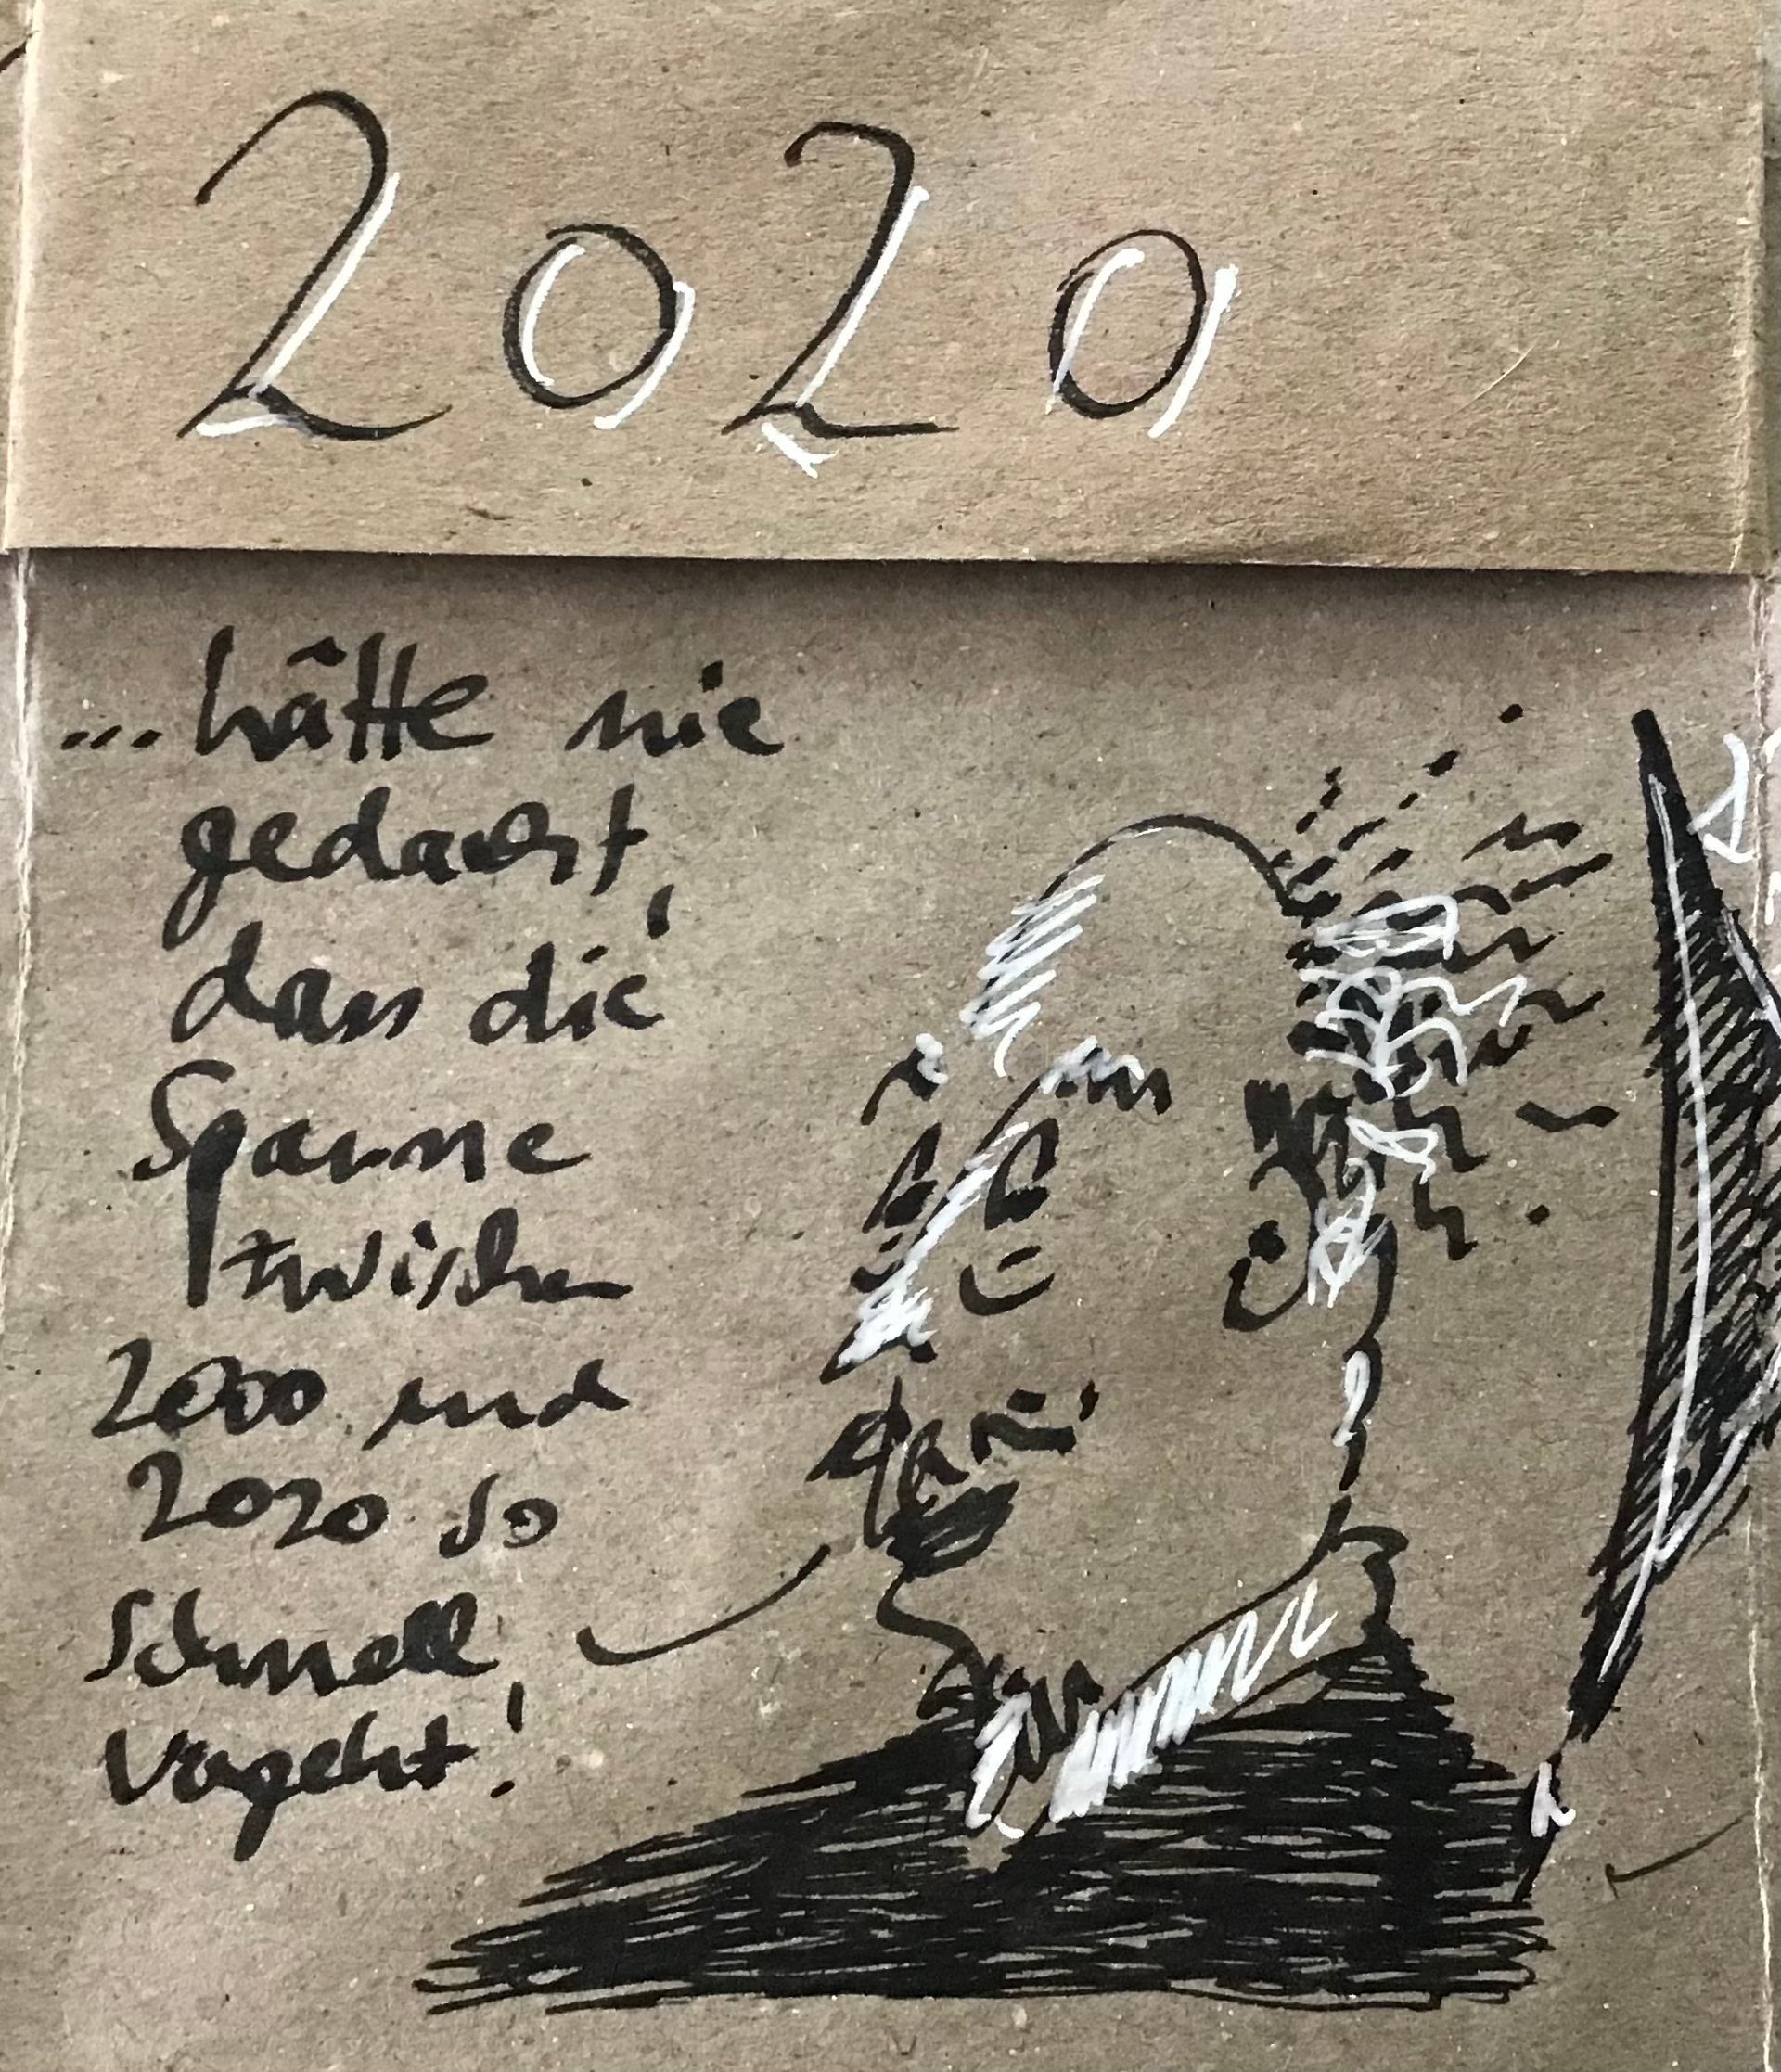 2020
...hätte nie
gedacht,
dass die
Spanne
zwischen
2000 und
2020 so
schnell
vergeht!